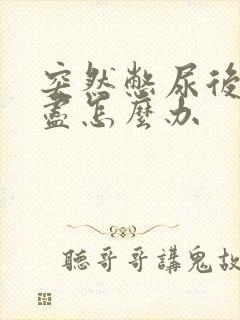 突然憋尿後
盡怎麼办
聽哥哥講鬼故